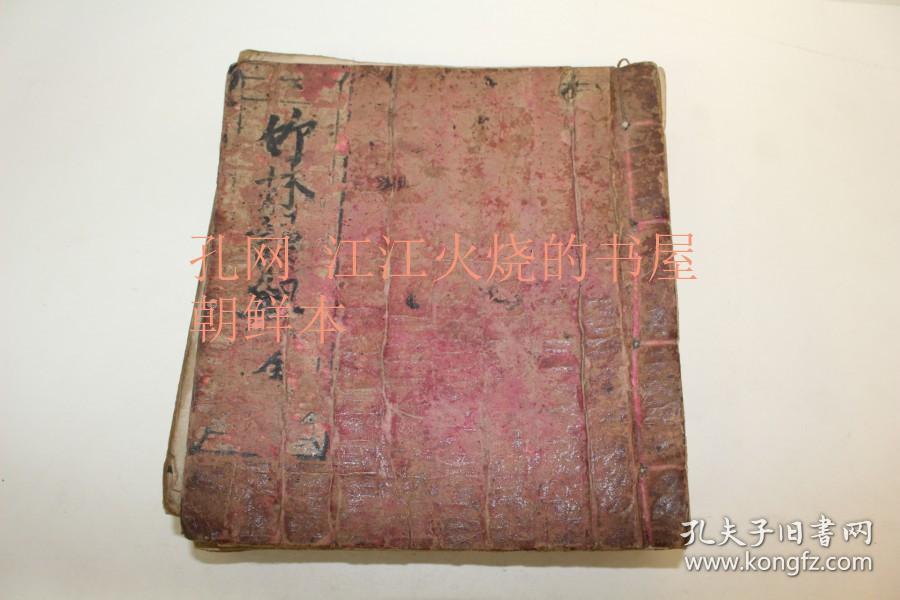 竹林
全
孔网 江江火烧的书屋
朝鲜本
孔夫子旧书网
www.kongfz.com